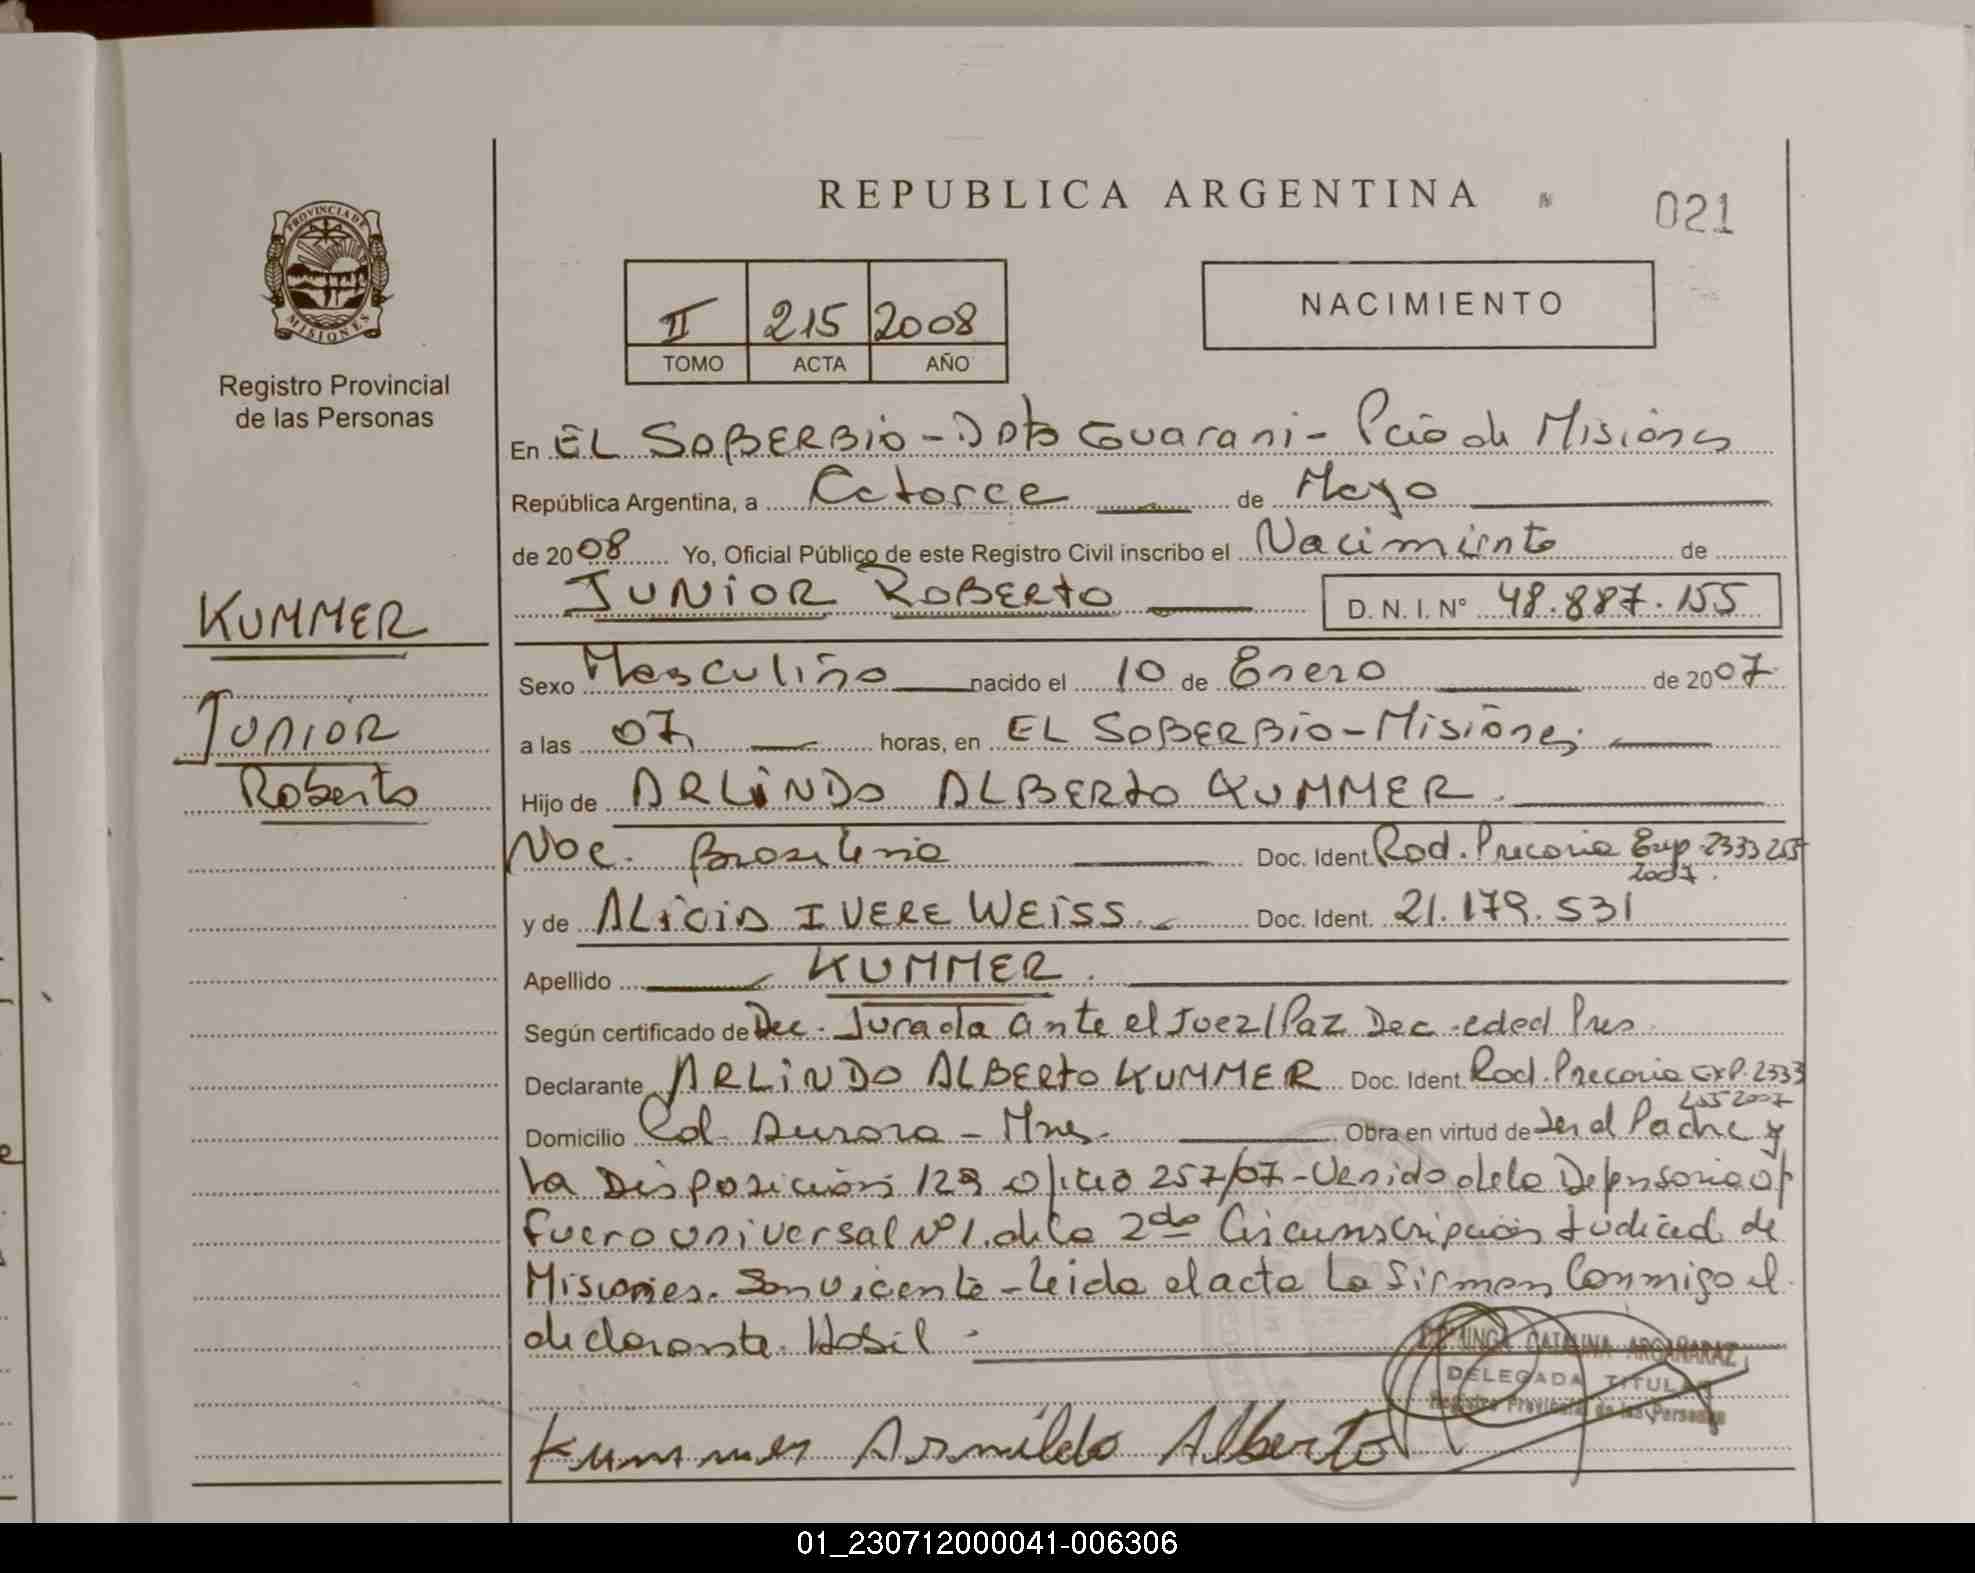 REPUBLICA ARGENTINA
021
PROVINCIA DE MISIONES
Registro Provincial
de las Personas
II 215 2008
TOMO ACTA AÑO
NACIMIENTO
En EL SOBERBIO - Dpto Guarani - Pcia de Misiones
República Argentina, a Catorce de Mayo
de 2008 Yo, Oficial Público de este Registro Civil inscribo el Nacimiento de
JUNIOR ROBERTO D. N. I. N° 48.887.155
KUMMER
Junior
Roberto
Sexo Masculino nacido el 10 de Enero de 2007
a las 07 horas, en EL SOBERBIO - Misiones
Hijo de ARLINDO ALBERTO KUMMER
Nac. Brasileña Doc. Ident. Rad. Precaria Exp. 2333 255
2007.
y de ALICIA IVERE WEISS Doc. Ident. 21.179.531
Apellido KUMMER
Según certificado de Dec. Jurada ante el Juez/Paz Dec. edad Pres
Declarante ARLINDO ALBERTO KUMMER Doc. Ident. Rad. Precaria EXP. 2333
255 2007
Domicilio Col. Aurora - Mnes. Obra en virtud de Ser el Padre y
La Disposición 129 oficio 257/07 - Venido de la Defensoria Of
fuero universal N° 1 de la 2da Circunscripción Judicial de
Misiones. San Vicente - Leida el acta La Firman Conmigo el
declarante. Habil.
DOMINGA CATALINA ARGAÑARAZ
DELEGADA TITULAR
Registro Provincial de las Personas
Kummer Arnildo Alberto
01_230712000041-006306